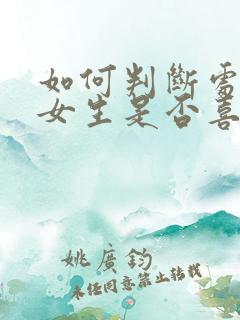 如何判斷雷
女生是否喜
姚廣鈞
未经同意禁止转载